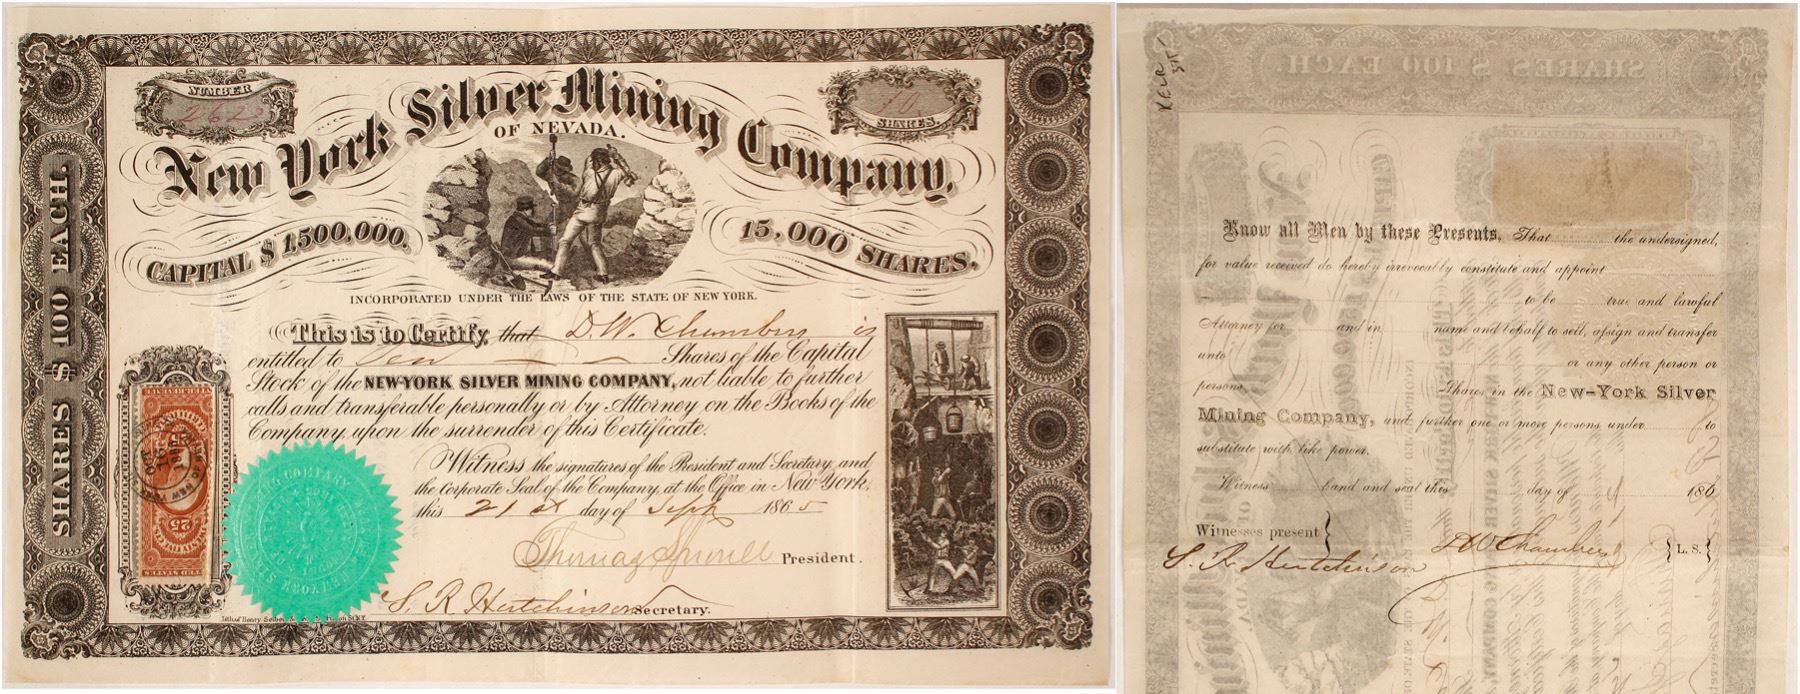 NUMBER
2620
New York Silver Mining Company,
OF NEVADA.
10
SHARES.
CAPITAL $ 1,500,000.
15,000 SHARES.
INCORPORATED UNDER THE LAWS OF THE STATE OF NEW YORK.
SHARES $ 100 EACH.
This is to Certify, that D. W. Chambers is
entitled to Ten Shares of the Capital
Stock of the NEW-YORK SILVER MINING COMPANY, not liable to further
calls and transferable personally or by Attorney on the Books of the
Company upon the surrender of this Certificate.
Witness the signatures of the President and Secretary, and
the Corporate Seal of the Company, at the Office in New York,
this 21st day of Sept 1865
Thomas President.
S. R. Hutchinson Secretary.
25
25
UNITED STATES
Lith of Henry
SHARES $ 100 EACH.
Know all Men by these Presents, That the undersigned,
for value received do hereby irrevocably constitute and appoint
to be true and lawful
Attorney for and in name and behalf to sell, assign and transfer
unto or any other person or
persons Shares in the New-York Silver
Mining Company, and further one or more persons under to
substitute with like power.
Witness hand and seal this day of 186
Witnesses present }
S. R. Hutchinson
D W Chambers { L. S. }